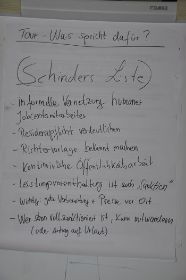 Tour - Was spricht dafür?
(Schinders Liste)
- informelle Vernetzung humaner
Jobcentermitarbeiter
- Residenzpflicht verdeutlichen
- Richtervorlage bekannt machen
- Kontinuierliche Öffentlichkeitsarbeit
- Leistungsvorenthaltung ist auch "Sanktion"
- Wichtig: gute Vorbereitung + Presse vor Ort
- Wer schon vollsanktioniert ist, kann mitwandern
(oder Antrag auf Urlaub).